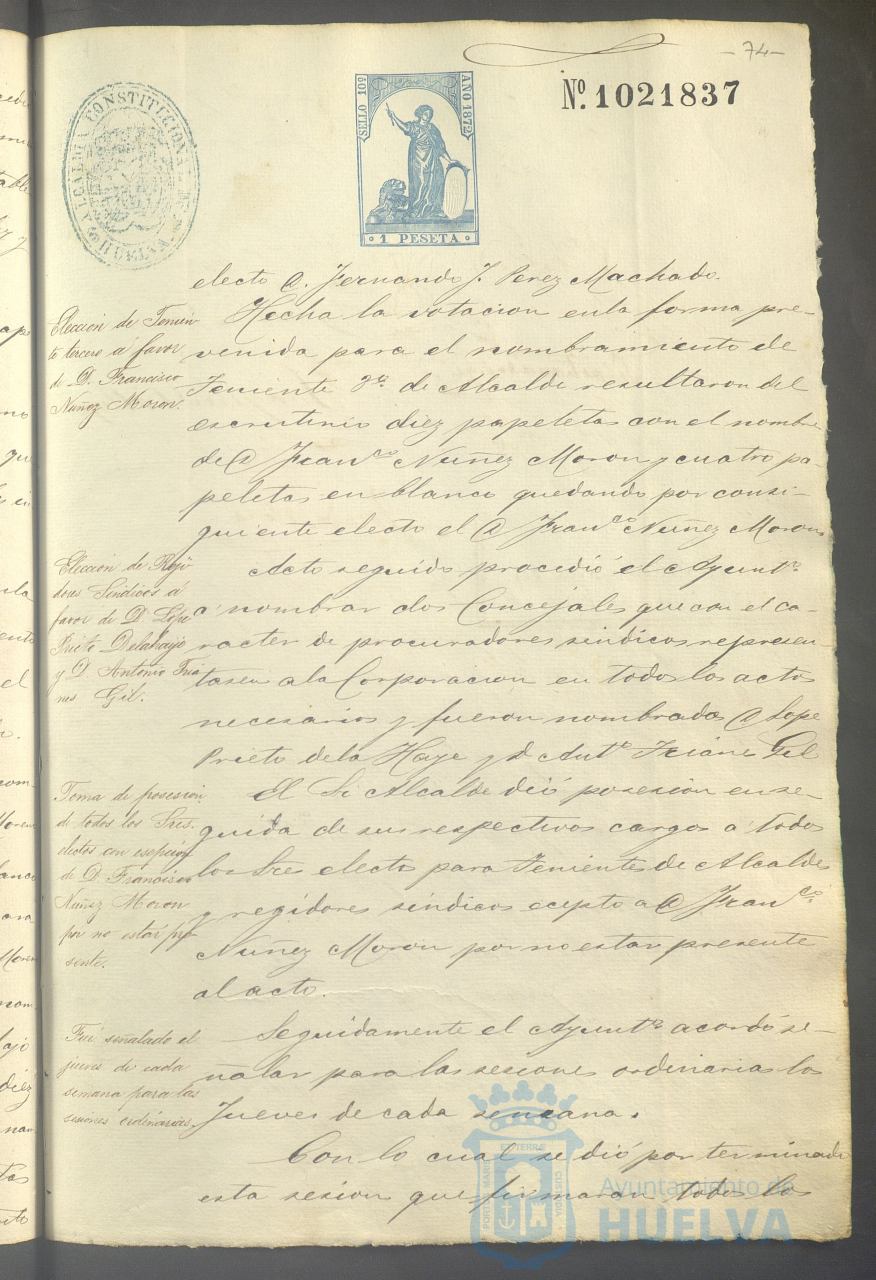 - 74 -
ALCALDIA CONSTITUCIONAL DE HUELVA
SELLO 10º
AÑO 1872
1 PESETA
Nº. 1021837
electo D. Fernando J. Perez Machado.
Elección de Tenien-
te tercero á favor
de D. Francisco
Nuñez Moron.
Hecha la votacion en la forma pre-
venida para el nombramiento de
Teniente 3º de Alcalde resultaron del
escrutinio diez papeletas con el nombre
de D Franco Nuñez Moron y cuatro pa-
peletas en blanco quedando por consi-
guiente electo el D Franco Nuñez Moron
Elección de Reji-
dores Síndicos á
favor de D Lope
Prieto Delahaye
y D Antonio Tria
nes Gil.
Acto seguido procedió el Ayunto
á nombrar dos Concejales que con el ca-
racter de procuradores sindicos represen-
tasen a la Corporacion en todos los actos
necesarios y fueron nombrados D Lope
Prieto de la Haye y D Anto Trianes Gil
Toma de posesion
de todos los Sres.
electos con esepcion
de D. Francisco
Nuñez Moron
por no estar pre-
sente.
El Sr Alcalde dió posesion en se-
guida de sus respectivos cargos a todos
los Sres electos para Tenientes de Alcaldes
y regidores sindicos ecepto a D Franco
Nuñez Moron por no estar presente
al acto.
Fué señalado el
jueves de cada
semana para las
sesiones ordinarias.
Seguidamente el Ayunto acordó se-
ñalar para las sesiones ordinarias los
Jueves de cada semana.
Con lo cual se dió por terminada
esta sesion que firmaran todos los
PORTUS MARIS ET TERRÆ CUSTODIA
Ayuntamiento de
HUELVA